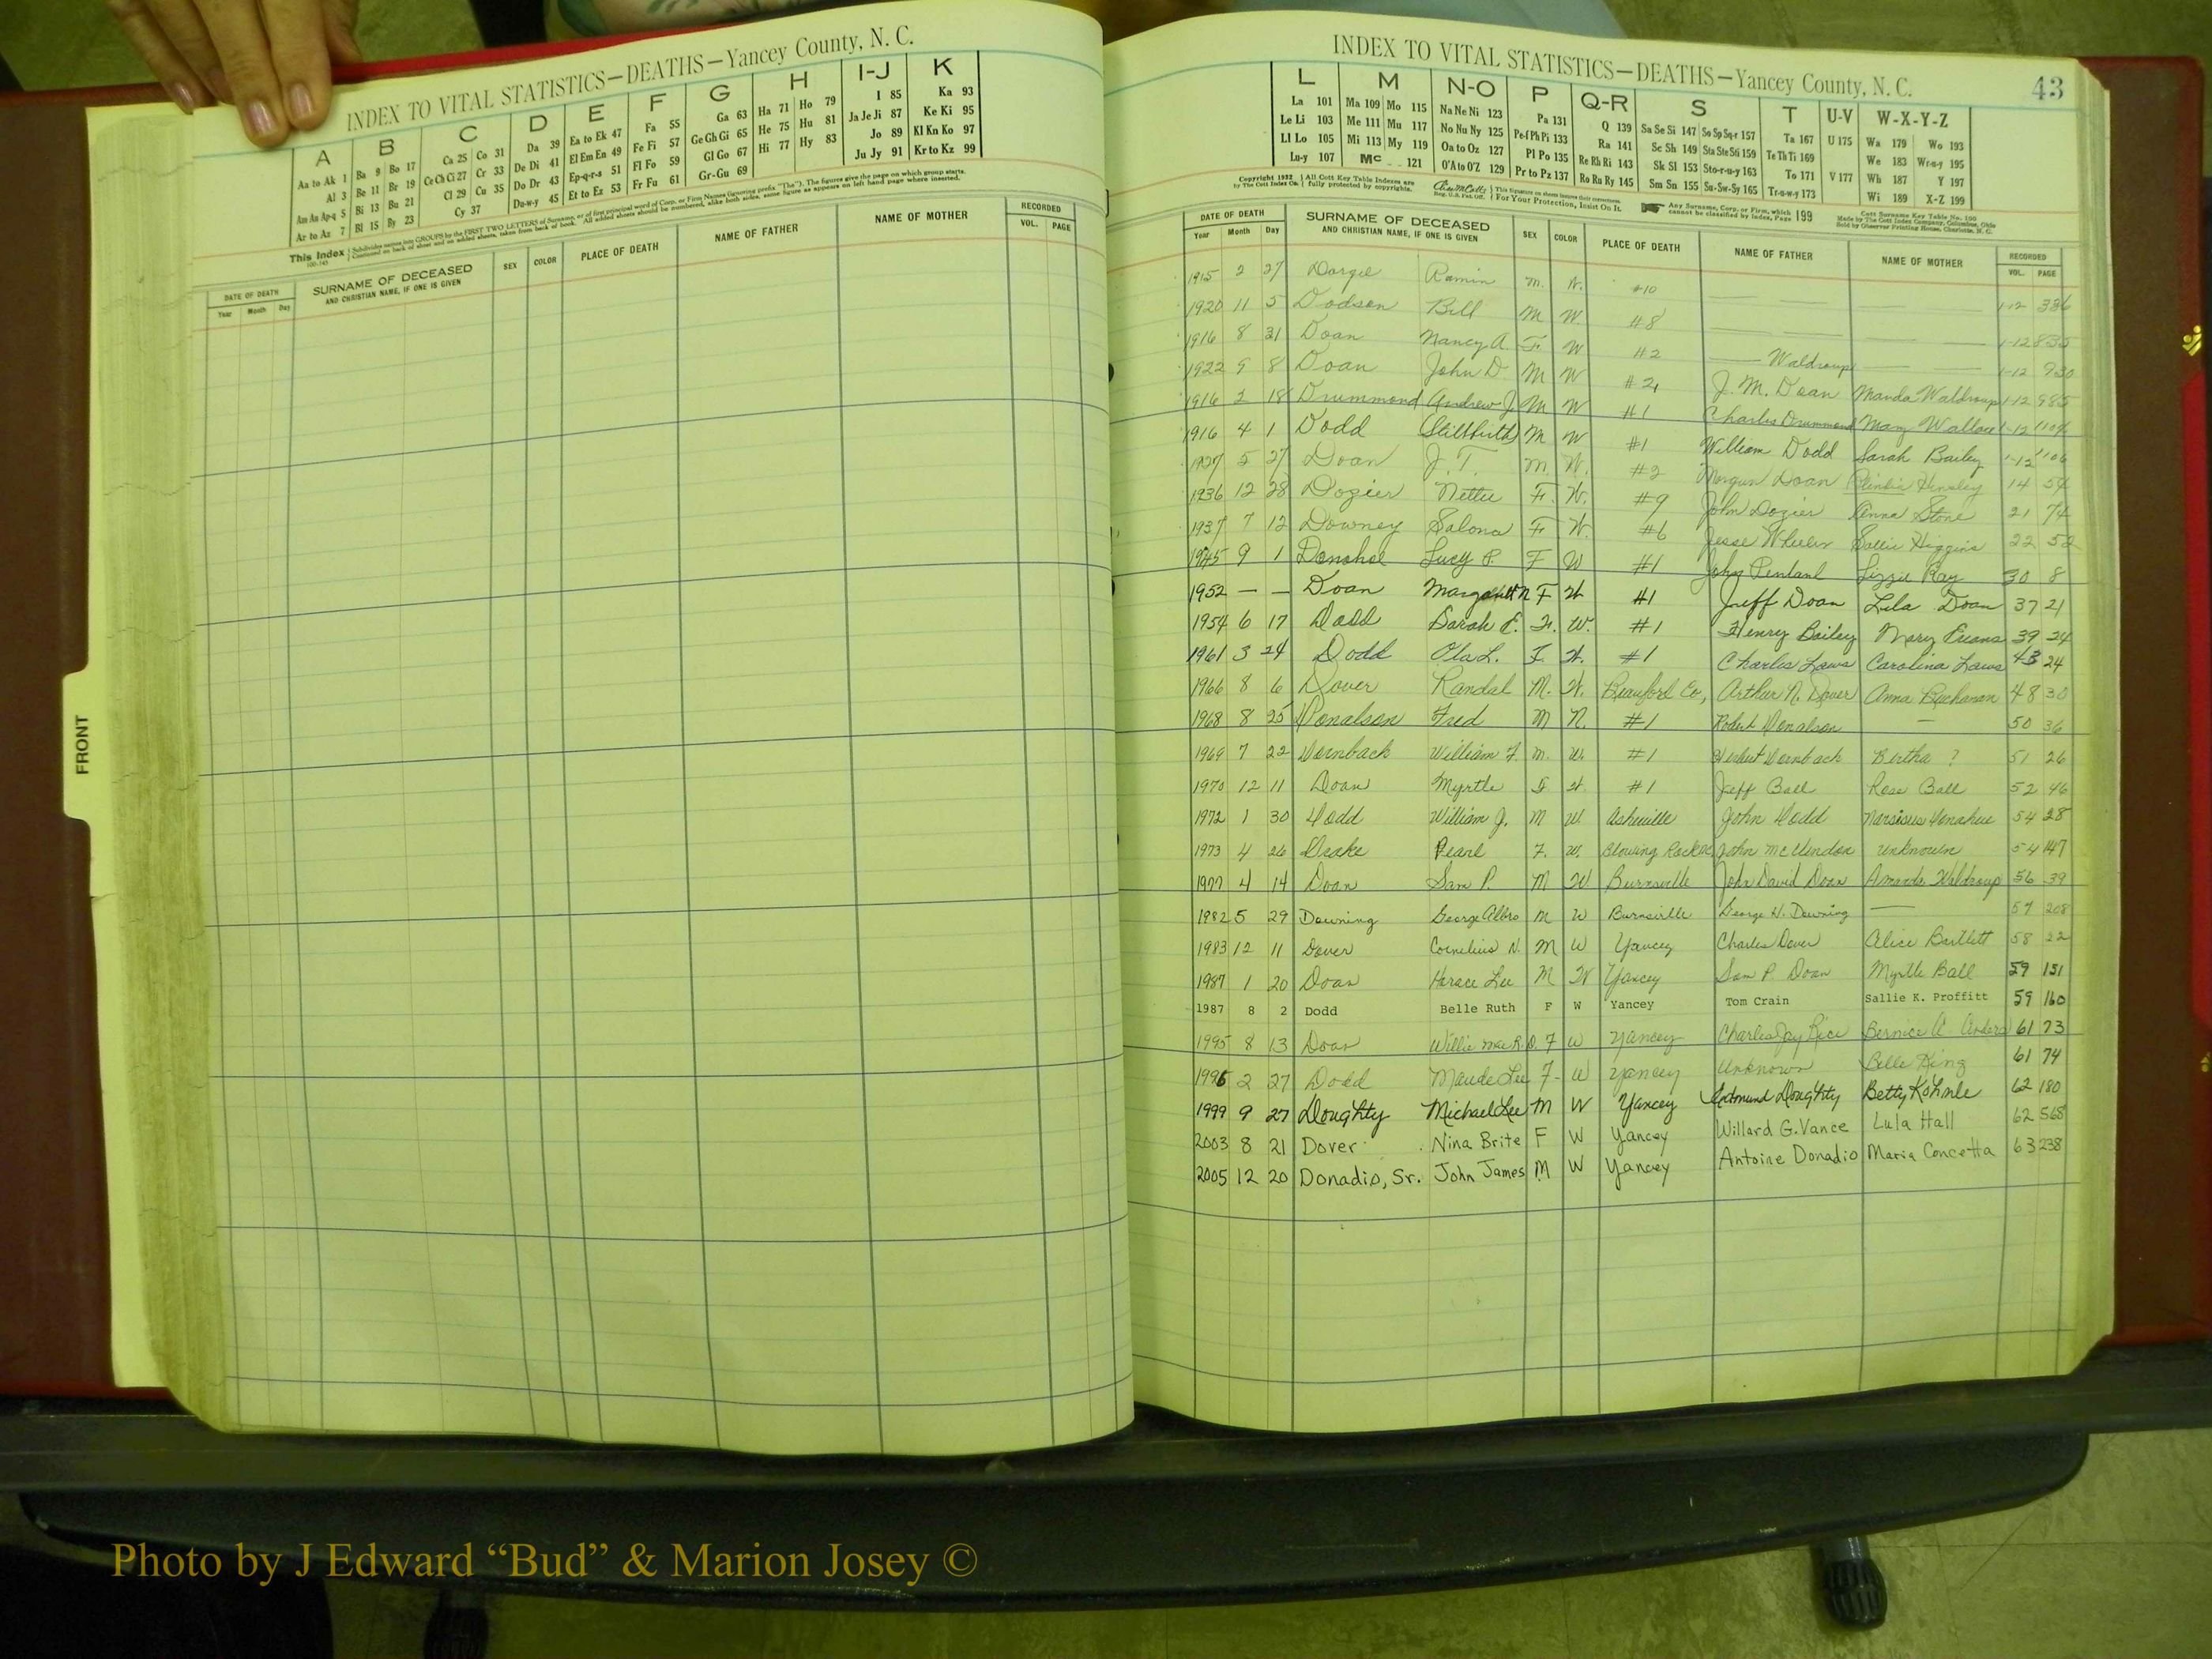 INDEX TO VITAL STATISTICS—DEATHS—Yancey County, N. C.
A B C D E F G H I-J K
Aa to Ak 1 Ba 9 Bo 17 Ca 25 Co 31 Da 39 Ea to Ek 47 Fa 55 Ga 63 Ha 71 Ho 79 I 85 Ka 93
Al 3 Be 11 Br 19 Ce Ch Ci 27 Cr 33 De Di 41 El Em En 49 Fe Fi 57 Ge Gh Gi 65 He 75 Hu 81 Ja Je Ji 87 Ke Ki 95
Am An Ap-q 5 Bi 13 Bu 21 Cl 29 Cu 35 Do Dr 43 Ep-q-r-s 51 Fl Fo 59 Gl Go 67 Hi 77 Hy 83 Jo 89 Kl Kn Ko 97
Ar to Az 7 Bl 15 By 23 Cy 37 Du-w-y 45 Et to Ez 53 Fr Fu 61 Gr-Gu 69 Ju Jy 91 Kr to Kz 99
This Index
DATE OF DEATH SURNAME OF DECEASED SEX COLOR PLACE OF DEATH NAME OF FATHER NAME OF MOTHER RECORDED
Year Month Day AND CHRISTIAN NAME, IF ONE IS GIVEN VOL. PAGE
FRONT
INDEX TO VITAL STATISTICS—DEATHS—Yancey County, N. C. 43
L M N-O P Q-R S T U-V W-X-Y-Z
La 101 Ma 109 Mo 115 Na Ne Ni 123 Pa 131 Q 139 Sa Se Si 147 So Sp Sq-r 157 Ta 167 U 175 Wa 179 Wo 193
Le Li 103 Me 111 Mu 117 No Nu Ny 125 Pe-f Ph Pi 133 Ra 141 Sc Sh 149 Sta Ste Sti 159 Te Th Ti 169 We 183 Wr-u-y 195
Ll Lo 105 Mi 113 My 119 Oa to Oz 127 Pl Po 135 Re Rh Ri 143 Sk Sl 153 Sto-r-u-y 163 To 171 V 177 Wh 187 Y 197
Lu-y 107 Mc 121 O'A to O'Z 129 Pr to Pz 137 Ro Ru Ry 145 Sm Sn 155 Su-Sw-Sy 165 Tr-u-w-y 173 Wi 189 X-Z 199
Copyright 1932 All Cott Key Table Indexes are fully protected by copyrights. For Your Protection, Insist On It. Any Surname, Corp. or Firm, which cannot be classified by index, Page 199
DATE OF DEATH SURNAME OF DECEASED SEX COLOR PLACE OF DEATH NAME OF FATHER NAME OF MOTHER RECORDED
Year Month Day AND CHRISTIAN NAME, IF ONE IS GIVEN VOL. PAGE
1915 2 27 M. W. #10 1-12 336
1920 11 5 Dodson Bill M W. #8 1-12 835
1916 8 31 Doan Nancy A. F. W #2 Waldroup 1-12 930
1922 9 8 Doan John D M W #2 J. M. Doan Manda Waldroup 1-12 985
1916 2 18 Drummond Andrew J M W #1 Charles Drummond Mary Wallace 1-12
1916 4 1 Dodd (Stillbirth) M W #1 William Dodd Sarah Bailey 1-12
1927 5 27 Doan J. T. M. W. #2 Morgan Doan Hensley 14 54
1936 12 28 Dozier Nettie F. W. #9 John Dozier Anna Stone 21 74
1937 7 12 Downey Salona F. W. #6 Jesse Wheeler Sallie Higgins 22 52
1945 9 1 Donahel Lucy P. F W #1 John Penland Lizzie Ray 30 8
1952 — — Doan Margarett N F W #1 Jeff Doan Lila Doan 37 21
1954 6 17 Dodd Sarah E. F. W. #1 Henry Bailey Mary Evans 39 24
1961 3 24 Dodd Ola L. F. W. #1 Charles Laws Carolina Laws 43 24
1966 8 6 Dover Randal M. W. Beauford Co., Arthur N. Dover Anna Buchanan 48 30
1968 8 25 Donalson Fred M N. #1 Robert Donalson — 50 36
1969 7 22 Dornback William F. M. W. #1 Herbert Dornback Bertha ? 51 26
1970 12 11 Doan Myrtle F W. #1 Jeff Ball Rose Ball 52 46
1972 1 30 Dodd William J. M W. Asheville John Dodd Narsisus Donahue 54 28
1973 4 26 Drake Pearl F. W. Blowing Rock John McClendon unknown 54 147
1977 4 14 Doan Sam P. M W Burnsville John David Doan Amanda Waldroup 56 39
1982 5 29 Downing George Albro M W Burnsville George H. Downing — 57 208
1983 12 11 Dover Cornelius N. M W Yancey Charles Dover Alice Bartlett 58 22
1987 1 20 Doan Horace Lee M W Yancey Sam P. Doan Myrtle Ball 59 151
1987 8 2 Dodd Belle Ruth F W Yancey Tom Crain Sallie K. Proffitt 59 160
1995 8 13 Doan Willie Mae R. D. F W Yancey Charles Jay Rice Bernice A. Anders 61 73
1996 2 27 Dodd Maude Lee F- W Yancey Unknown Belle King 61 74
1999 9 27 Doughty Michael Lee M W Yancey Edmund Doughty Betty Kohnle 62 180
2003 8 21 Dover Nina Brite F W Yancey Willard G. Vance Lula Hall 62 568
2005 12 20 Donadio, Sr. John James M W Yancey Antoine Donadio Maria Concetta 63 238
Photo by J Edward “Bud” & Marion Josey ©